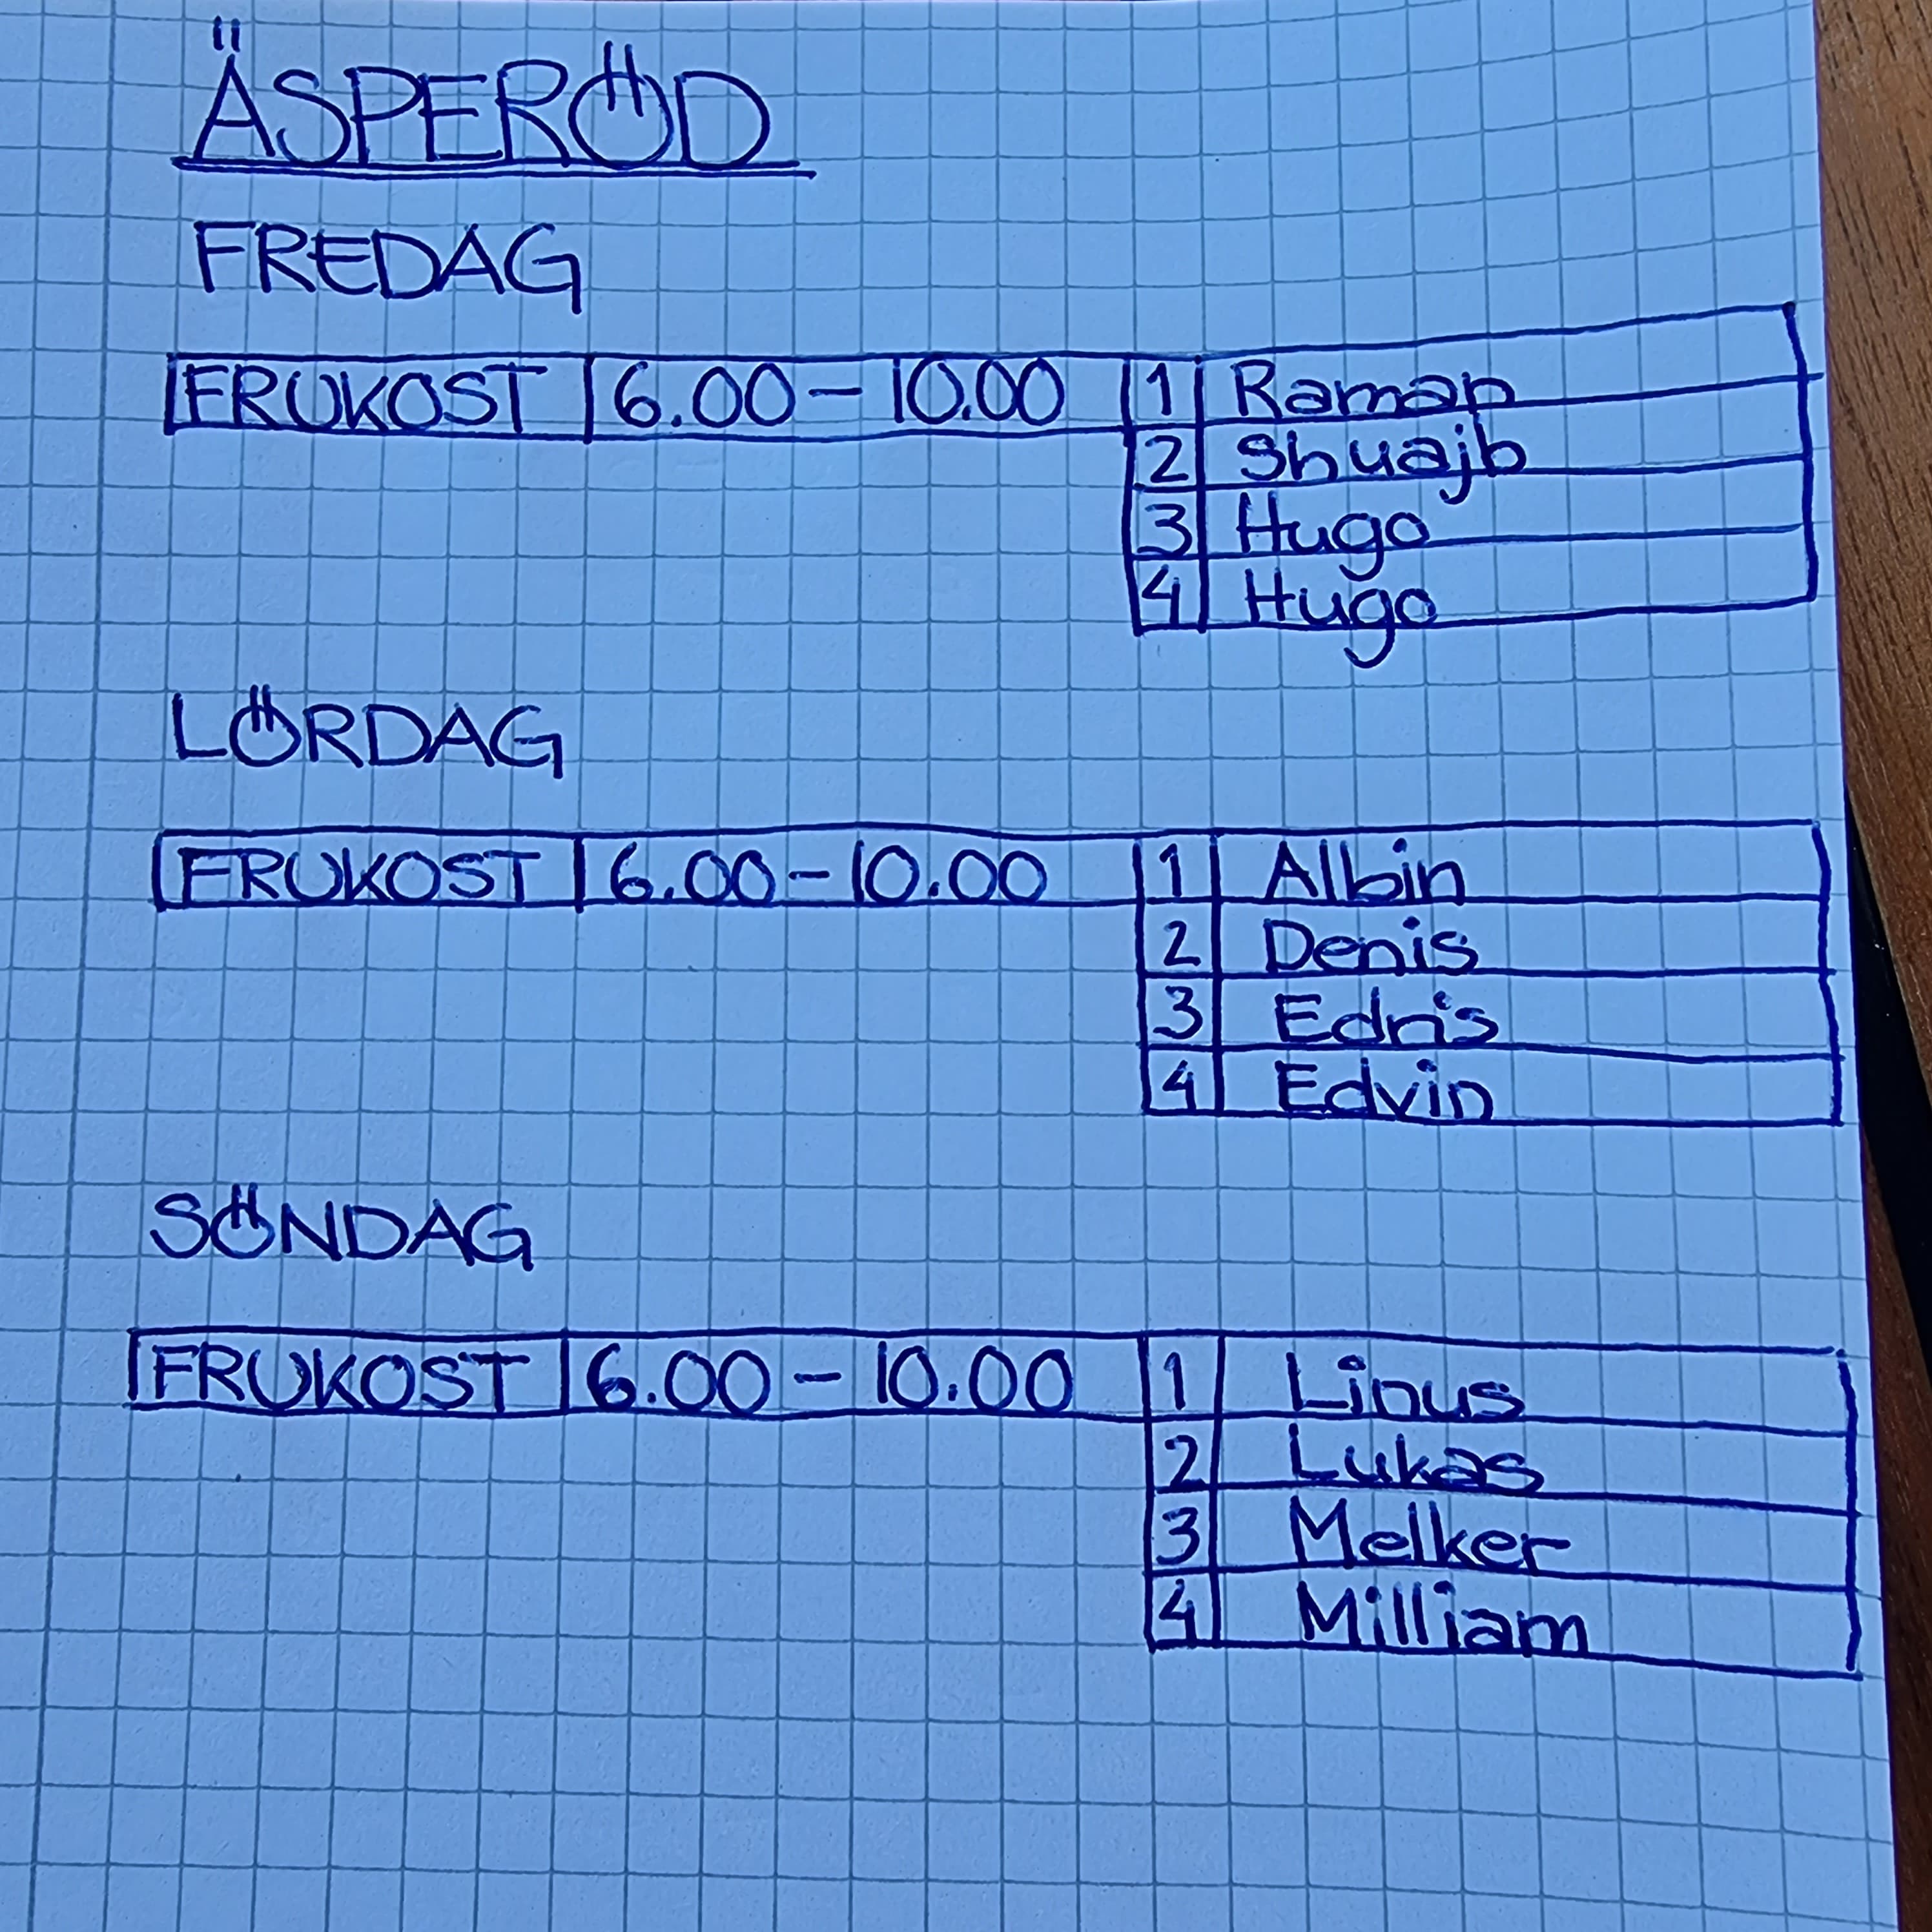 ÄSPERÖD
FREDAG
FRUKOST 6.00 – 10.00 1 Raman
2 Shuajb
3 Hugo
4 Hugo
LÖRDAG
FRUKOST 6.00 – 10.00 1 Albin
2 Denis
3 Edris
4 Edvin
SÖNDAG
FRUKOST 6.00 – 10.00 1 Linus
2 Lukas
3 Melker
4 Milliam